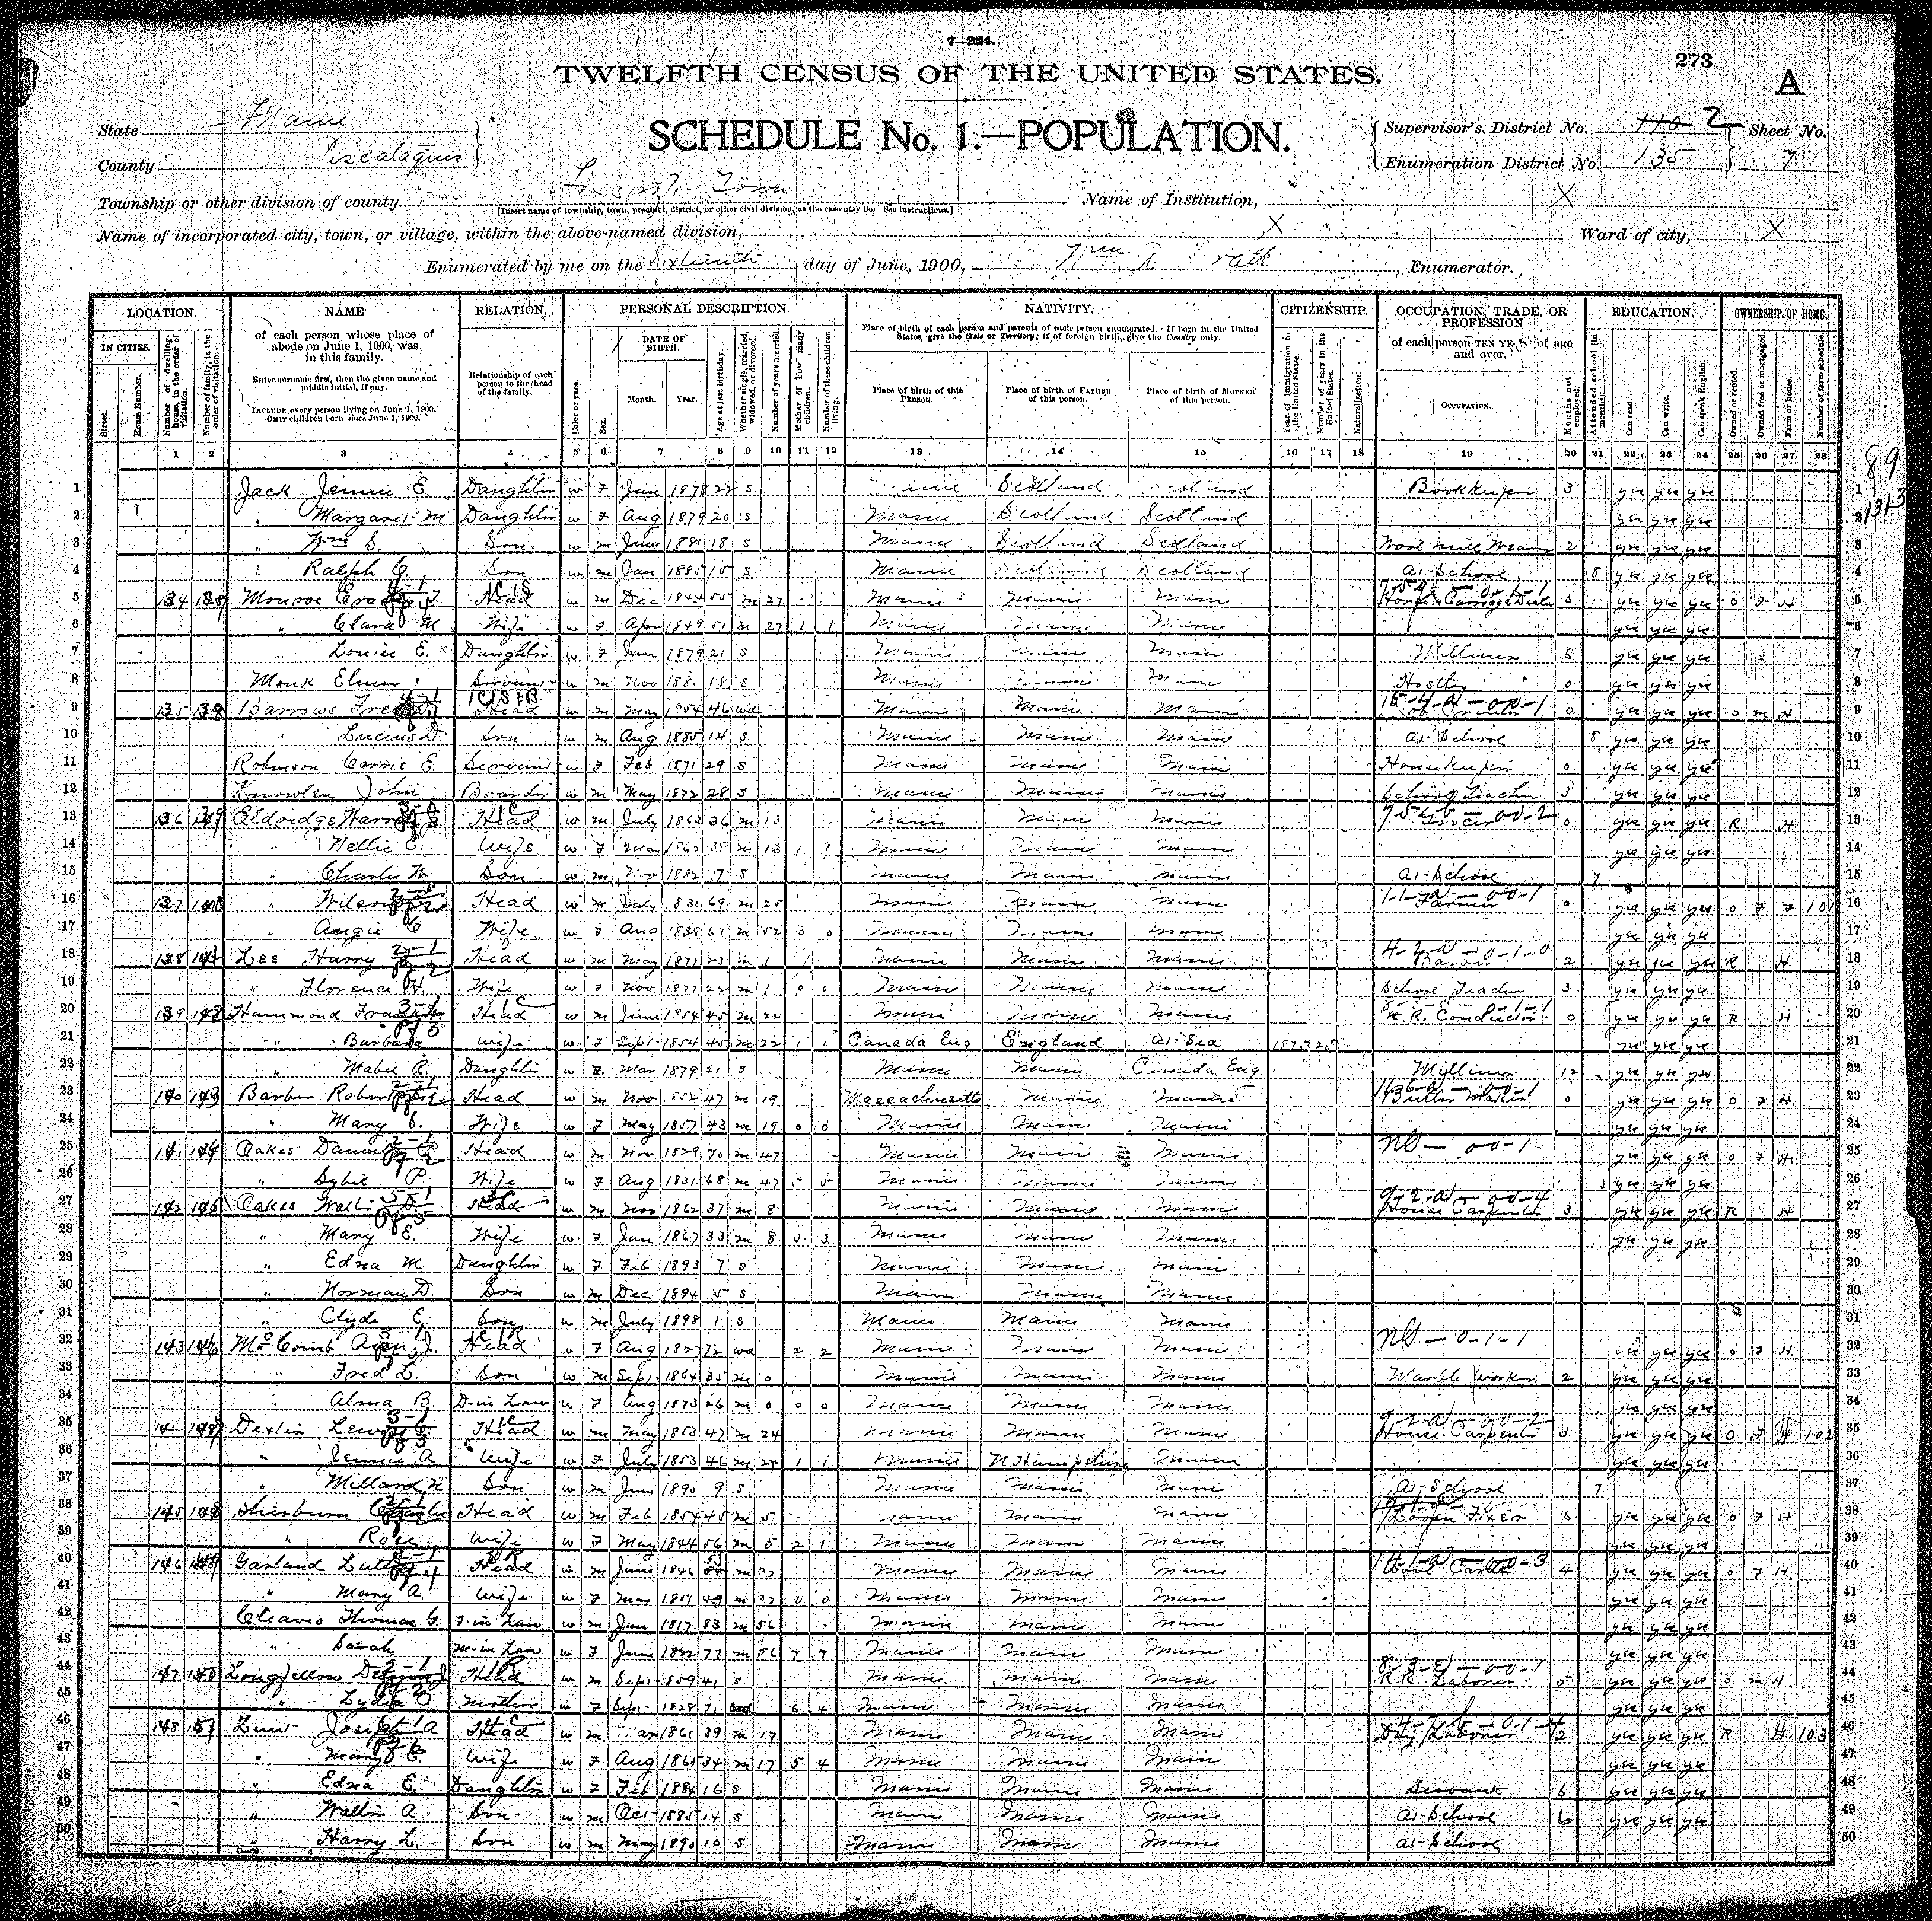 7—224.
273
A
TWELFTH CENSUS OF THE UNITED STATES.
SCHEDULE No. 1.—POPULATION.
State Maine
County Piscataquis
Supervisor's District No. 110 2
Enumeration District No. 135
Sheet No. 7
Township or other division of county Town
[Insert name of township, town, precinct, district, or other civil division, as the case may be. See instructions.]
Name of Institution, X
Name of incorporated city, town, or village, within the above-named division, X
Ward of city, X
Enumerated by me on the Sixteenth day of June, 1900, Enumerator.
89
1313
LOCATION. NAME RELATION. PERSONAL DESCRIPTION. NATIVITY. CITIZENSHIP. OCCUPATION, TRADE, OR PROFESSION EDUCATION. OWNERSHIP OF HOME.
IN CITIES. Street. House Number. Number of dwelling-house, in the order of visitation. Number of family, in the order of visitation.
of each person whose place of abode on June 1, 1900, was in this family.
Enter surname first, then the given name and middle initial, if any.
INCLUDE every person living on June 1, 1900. OMIT children born since June 1, 1900.
Relationship of each person to the head of the family.
Color or race. Sex. DATE OF BIRTH. Month. Year. Age at last birthday. Whether single, married, widowed, or divorced. Number of years married. Mother of how many children. Number of these children living.
Place of birth of each person and parents of each person enumerated. If born in the United States, give the State or Territory; if of foreign birth, give the Country only.
Place of birth of this PERSON. Place of birth of FATHER of this person. Place of birth of MOTHER of this person.
Year of immigration to the United States. Number of years in the United States. Naturalization.
of each person TEN YEARS of age and over.
OCCUPATION. Months not employed.
Attended school (in months). Can read. Can write. Can speak English.
Owned or rented. Owned free or mortgaged. Farm or house. Number of farm schedule.
1 2 3 4 5 6 7 8 9 10 11 12 13 14 15 16 17 18 19 20 21 22 23 24 25 26 27 28
1 Jack Jennie E. Daughter w F Jan 1878 22 s Scotland Bookkeeper 3 yes yes yes 1
2 " Margaret M Daughter w F Aug 1879 20 s Maine Scotland Scotland yes yes yes 2
3 " Wm S. Son w m 1881 18 s Maine Scotland Scotland 2 yes yes yes 3
4 " Ralph Son w m Jan 1885 15 s Maine Scotland Scotland At School 8 yes yes yes 4
5 134 Monroe Head w m Dec 1844 55 m 27 Maine Maine Maine Horse & Carriage Dealer 0 yes yes yes O F H 5
6 " Clara M Wife w F Apr 1849 51 m 27 1 1 Maine Maine Maine yes yes yes 6
7 " Louise E. Daughter w F Jan 1879 21 s Maine Maine Maine Milliner 6 yes yes yes 7
8 Monk Elmer Servant w m Nov 188 18 s Maine Maine Maine Hostler 0 yes yes yes 8
9 135 Barrows Fred Head w m May 1854 46 wd Maine Maine Maine 0 yes yes yes O m H 9
10 " Lucius D. Son w m Aug 1885 14 s Maine Maine Maine At School 8 yes yes yes 10
11 Robinson Carrie E. Servant w F Feb 1871 29 s Maine Maine Maine Housekeeper 0 yes yes yes 11
12 Knowlen John Boarder w m May 1872 28 s Maine Maine Maine School Teacher 3 yes yes yes 12
13 136 Eldridge Harry Head w m July 1863 36 m 13 Maine Maine Maine Grocer 0 yes yes yes R H 13
14 " Nellie E. Wife w F m 13 1 Maine Maine Maine yes yes yes 14
15 " Charles W. Son w m Nov 7 s Maine Maine Maine At School 7 15
16 137 " Wilson Head w m July 830 69 m Maine Maine Maine Farmer 0 yes yes yes O F F 101 16
17 " Angie C. Wife w F Aug 1838 61 m 0 0 Maine Maine Maine yes yes yes 17
18 138 Lee Harry Head w m May 1877 23 m 1 Maine Maine Maine 2 yes yes yes R H 18
19 " Florence Wife w F Nov 1877 22 m 1 0 0 Maine Maine Maine School Teacher 3 yes yes yes 19
20 139 Hammond Head w m June 1854 45 m 22 Maine Maine Maine R. R. Conductor 0 yes yes yes R H 20
21 " Barbara Wife w F Sept 1854 45 m 22 1 1 Canada Eng England At Sea yes yes yes 21
22 " Mabel R. Daughter w F. Mar 1879 21 s Maine Maine Canada Eng Milliner 12 yes yes yes 22
23 140 143 Barber Robert Head w m Nov 852 47 m 19 Massachusetts Maine Maine Butter Maker 0 yes yes yes O F H 23
24 " Mary C. Wife w F May 1857 43 m 19 0 0 Maine Maine Maine yes yes yes 24
25 Oakes Head w m Nov 1829 70 m 47 Maine Maine Maine yes yes yes O F H 25
26 " Sybil P. Wife w F Aug 1831 68 m 47 5 5 Maine Maine Maine yes yes yes 26
27 142 Oakes Head w m Nov 1862 37 m 8 Maine Maine Maine House Carpenter 3 yes yes yes R H 27
28 " Mary E. Wife w F Jan 1867 33 m 8 3 3 Maine Maine Maine yes yes yes 28
29 " Edna M Daughter w F Feb 1893 7 s Maine Maine Maine 29
30 " Norman D. Son w m Dec 1894 5 s Maine Maine Maine 30
31 " Clyde E. Son w m July 1898 1 s Maine Maine Maine 31
32 143 McComb Head w F Aug 1827 72 wd 2 2 Maine Maine Maine yes yes yes O F H 32
33 " Fred L. Son w m Sept 1864 35 m 0 Maine Maine Maine Marble Worker 2 yes yes yes 33
34 " Alma B. D-in Law w F Aug 1873 26 m 0 0 0 Maine Maine Maine yes yes yes 34
35 Dexter Head w m May 1853 47 m 24 Maine Maine Maine House Carpenter 3 yes yes yes O F 102 35
36 " Jennie A Wife w F July 1853 46 m 24 1 1 Maine N Hampshire Maine yes yes yes 36
37 " Millard Son w m June 1890 9 s Maine Maine Maine At School 7 37
38 145 Head w m Feb 1854 45 m 5 Maine Maine Loom Fixer 6 yes yes yes O F H 38
39 " Rose Wife w F May 1844 56 m 5 2 1 Maine Maine Maine yes yes yes 39
40 146 Garland Head w m June 1846 m Maine Maine Maine 4 yes yes yes O F H 40
41 " Mary A. Wife w F May 1851 49 m 0 0 Maine Maine Maine yes yes yes 41
42 Cleaves Thomas G. F-in Law w m 1817 83 m 56 Maine Maine Maine yes yes yes 42
43 " Sarah M-in Law w F June 1822 77 m 56 7 7 Maine Maine Maine yes yes yes 43
44 147 Longfellow Head w m Sept 1859 41 s Maine Maine Maine R.R. Laborer 5 yes yes yes O m H 44
45 " Lydia Mother w F Sept 1828 71 wd 6 4 Maine Maine Maine yes yes yes 45
46 148 Joseph A Head w m Mar 1861 39 m 17 Maine Maine Maine Day Laborer 2 yes yes yes R H 103 46
47 " Mary E. Wife w F Aug 1865 34 m 17 5 4 Maine Maine Maine yes yes yes 47
48 " Edna E. Daughter w F Feb 1884 16 s Maine Maine Maine Servant 6 yes yes yes 48
49 " Walter A. Son w m Oct 1885 14 s Maine Maine Maine At School 6 yes yes yes 49
50 " Harry L. Son w m May 1890 10 s Maine Maine Maine At School 50